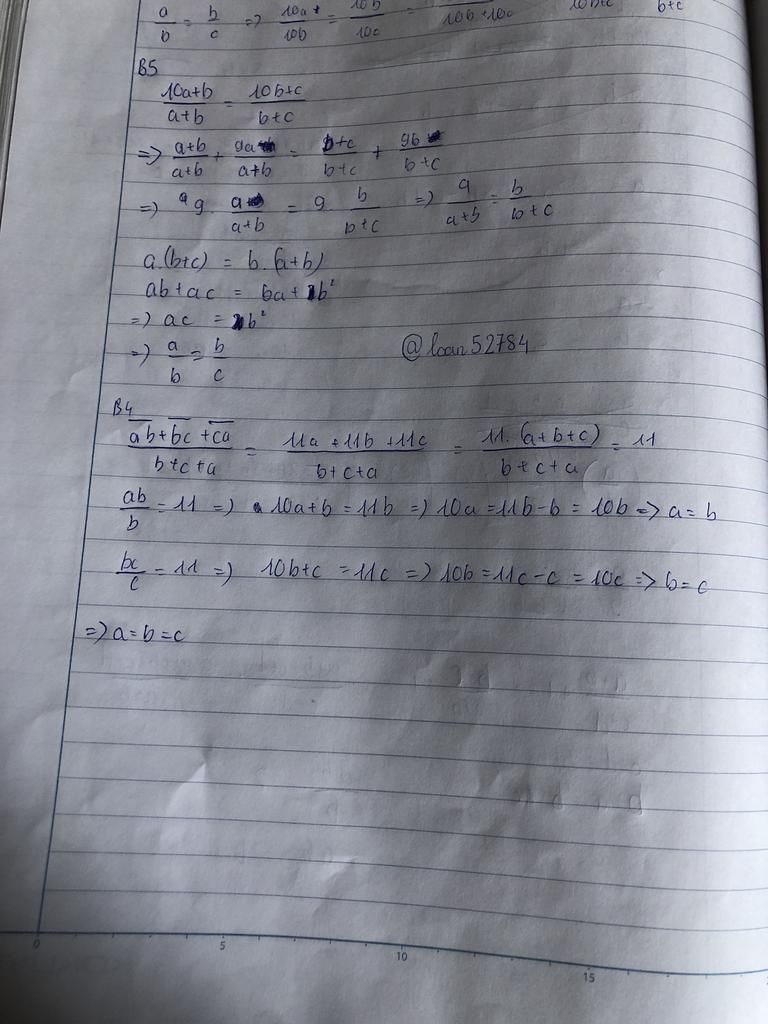 a/b = b/c => 10a/10b = 10b/10c = /10b+10c 10b+c b+c
B5
10a+b/a+b = 10b+c/b+c
=> a+b/a+b + 9a/a+b = b+c/b+c + 9b/b+c
=> 9. a/a+b = 9 b/b+c => a/a+b = b/b+c
a.(b+c) = b.(a+b)
ab+ac = ba+b²
=> ac = b²
=> a/b = b/c @loan52784
B4
a̅b̅+b̅c̅+c̅a̅/b+c+a = 11a+11b+11c/b+c+a = 11.(a+b+c)/b+c+a = 11
ab/b = 11 => 10a+b = 11b => 10a = 11b-b = 10b => a = b
bc/c = 11 => 10b+c = 11c => 10b = 11c-c = 10c => b = c
=> a = b = c
0 5 10 15